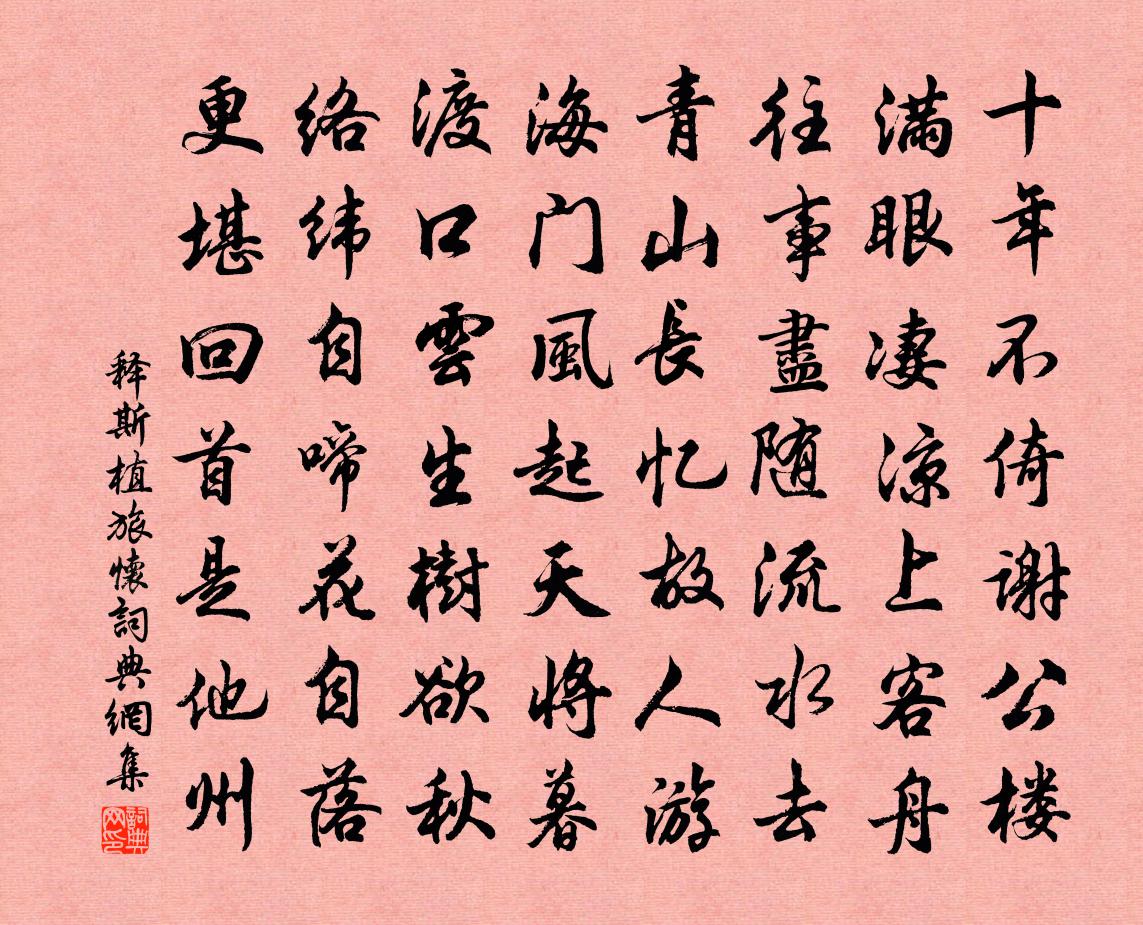 十年不倚谢公楼
满眼凄凉上客舟
往事盡随流水去
青山長忆故人游
海门風起天将暮
渡口雲生樹欲秋
络纬自啼花自落
更堪回首是他州
释斯植旅懷詞典網集
詞典网印